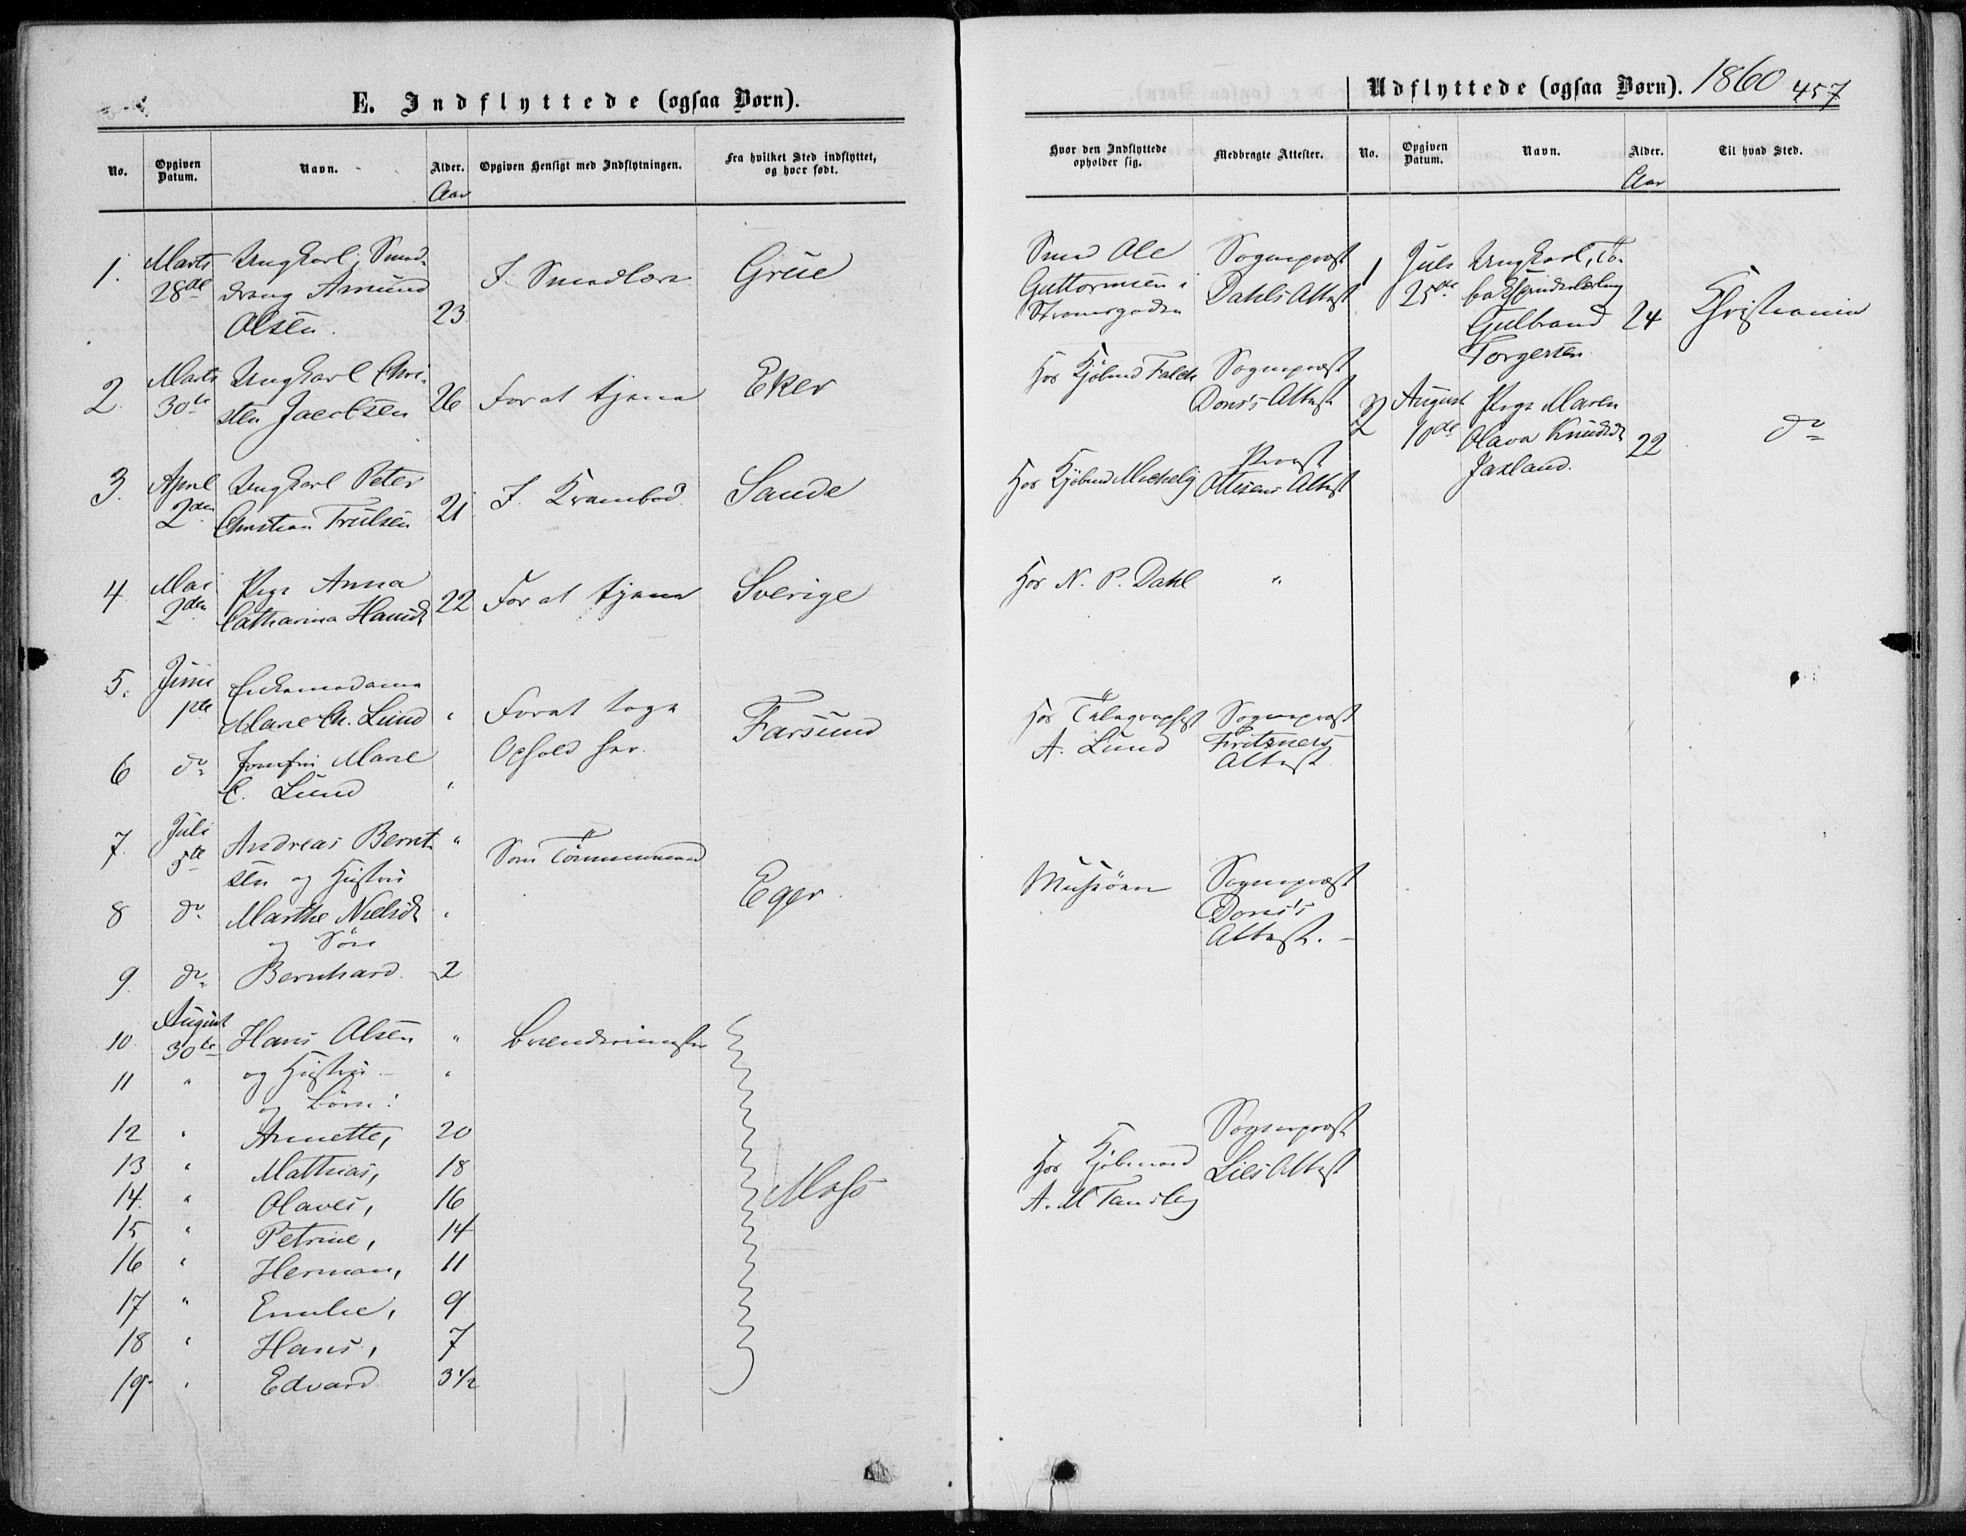 E. Indflyttede (ogsaa Børn).
No.
Opgiven Datum.
Navn.
Alder.
Aar
Opgiven Hensigt med Indflytningen.
Fra hvilket Sted indflyttet,
og hvor født.
1.
Marts
28de
Ungkarl, Smed-
dreng Amund
Olsen.
23
I Smedlære
Grue
2.
Marts
30te
Ungkarl Chri-
sten Jacobsen
26
For at tjene
Eker
3.
April
2den
Ungkarl Peter
Christian Trulsen
21
I Krambod
Sande
4
Mai
2den
Pige Anna
Catharina Hansd
22
For at tjene
Sverige
5.
Juni
1ste
Enkemadame
Marie Ch. Lund
"
For at tage
Ophold her.
Farsund
6
do
Jomfru Marie
C. Lund
"
7.
Juli
5te
Andreas Bernt-
sen og Hustru
"
Som Tømmermand
Eger
8
do
Marthe Nielsd
og Søn
"
9.
do
Bernhard.
2
10
August
30te
Hans Olsen
"
Brænderimester
11
"
og Hustru
"
og Børn:
12
"
Annette,
20
13
"
Mathias,
18
14.
"
Olaves,
16
Moss
15
"
Petrine,
14
16
"
Herman,
11
17
"
Emilie,
9
18
"
Hans,
7
19.
"
Edvard
3½
Udflyttede (ogsaa Børn).
1860
457
Hvor den Indflyttede
opholder sig.
Medbragte Attester.
No.
Opgiven
Datum.
Navn.
Alder.
Aar
Til hvad Sted.
Smed Ole
Guttormsen i
Strømsgaden
Sognepræst
Dahls Attest
Hos Kjøbmd Falch
Sognepræst
Dons's Attest
Hos Kjøbmd
Provst
Ottesens Attest
Hos N. P. Dahl
"
Hos Telegraphist
A. Lund
Sognepræst
Fritzners
Attest
Sognepræst
Dons's
Attest. –
Hos Kjøbmand
A. M Tandberg
Sognepræst
Lies Attest
1
Juli
25de
Ungkarl, To-
bakspinderlærling
Gulbrand
Torgersen
24
Christiania
2
August
10de
Pige Maren
Olava Knudsd
22
do